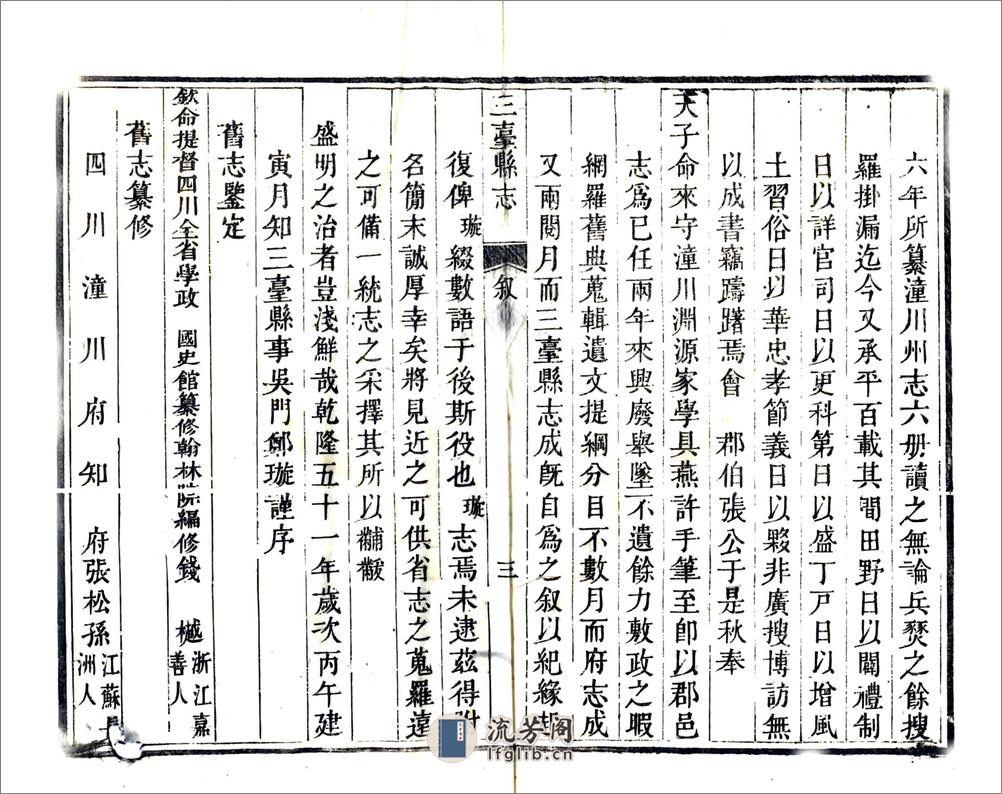 六年所纂潼川州志六册讀之無論兵燹之餘搜
羅掛漏迄今又承平百載其間田野日以闢禮制
日以詳官司日以更科第日以盛丁戸日以增風
土習俗日以華忠孝節義日以夥非廣搜博訪無
以成書竊躊躇焉會 郡伯張公于是秋奉
天子命來守潼川淵源家學具燕許手筆至卽以郡邑
志爲已任兩年來興廢舉墜不遺餘力敷政之暇
網羅舊典蒐輯遺文提綱分目不數月而府志成
又兩閱月而三臺縣志成旣自爲之叙以紀緣起
三臺縣志 叙 三
復俾璇綴數語于後斯役也璇志焉未逮茲得附
名簡末誠厚幸矣將見近之可供省志之蒐羅遠
之可備一統志之采擇其所以黼黻
盛明之治者豈淺鮮哉乾隆五十一年歲次丙午建
寅月知三臺縣事吳門鄭璇謹序
舊志鑒定
欽命提督四川全省學政 國史館纂修翰林院編修錢 樾浙江嘉善人
舊志纂修
四川潼川府知 府張松孫江蘇長洲人
流芳阁
lfglib.cn